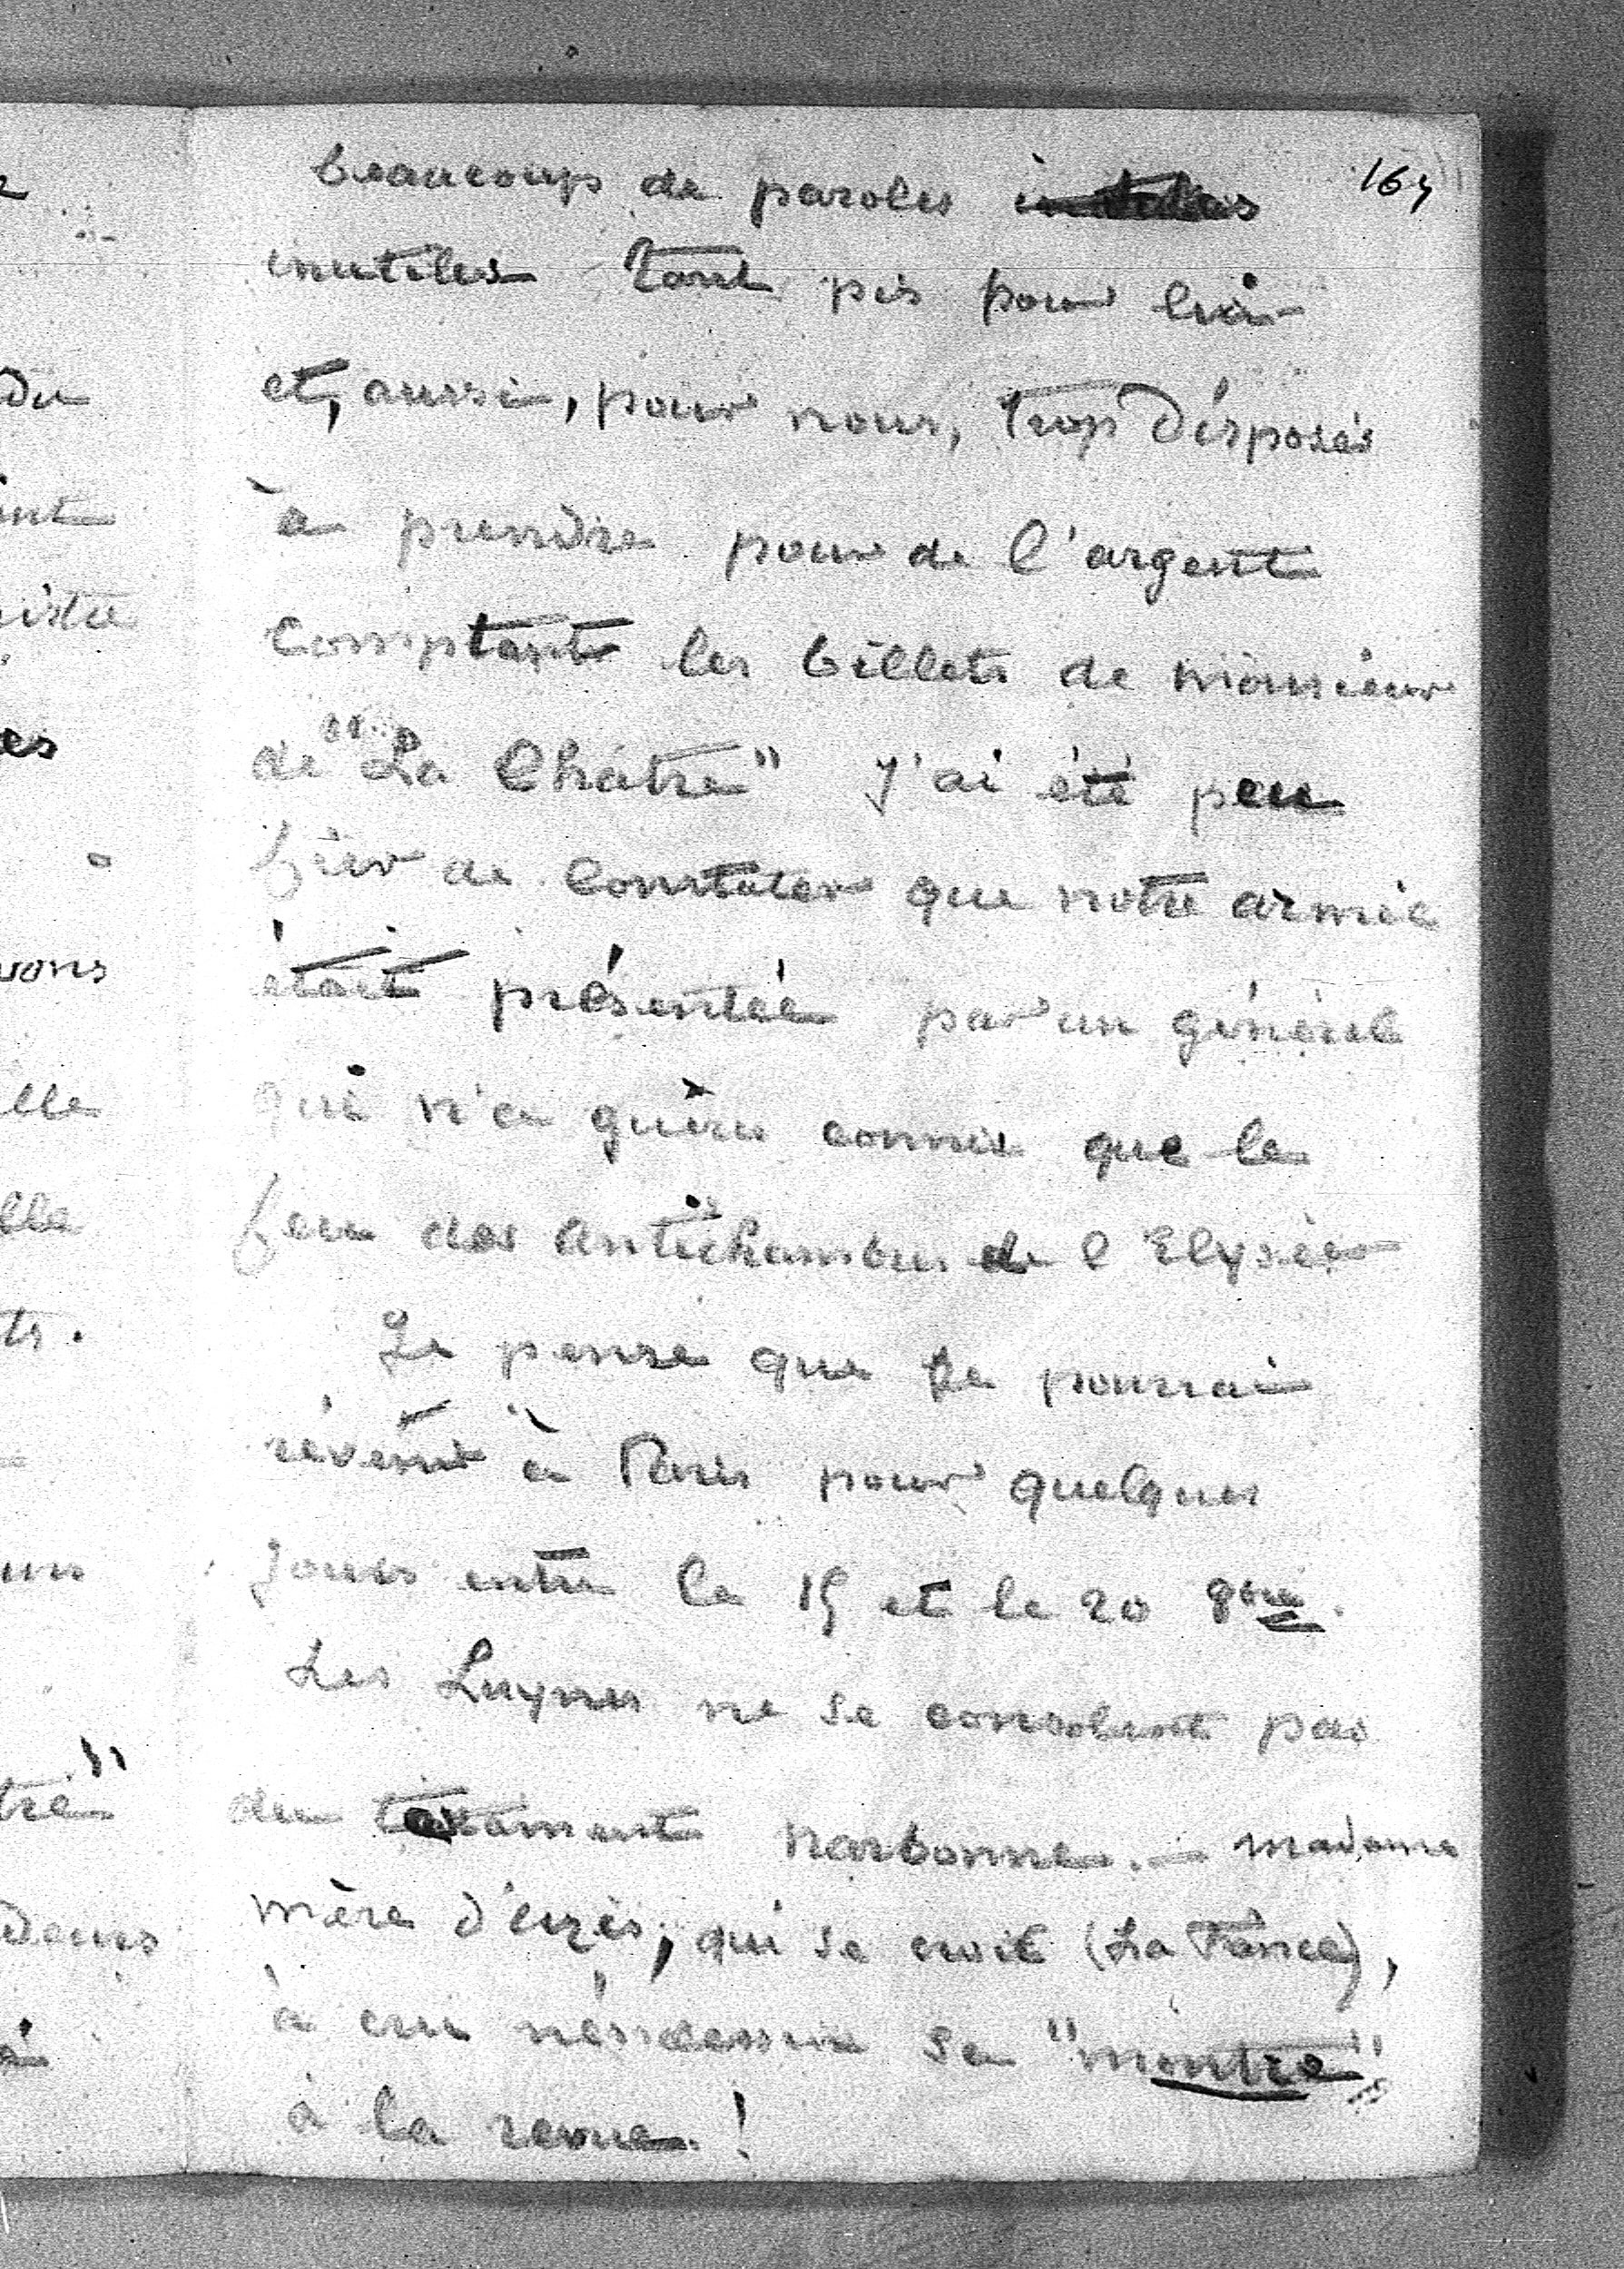 164
beaucoup de paroles
inutiles Tant pis pour lui
et, aussi, pour nous, trop disposés
à prendre pour de l'argent
comptant les billets de monsieur
de "La Châtre" J'ai été peu
fier de constater que notre armée
était présentée par un général
qui n'a guère connu que le
feu des antichambres de l'Elysée
Je pense que je pourrai
revenir à Paris pour quelques
jours entre le 15 et le 20
Les Luynes ne se consolent pas
du testament narbonne. - madame
mère d'uzès, qui se croit (La France),
à cru nécessaire se "montre"
à la revue !